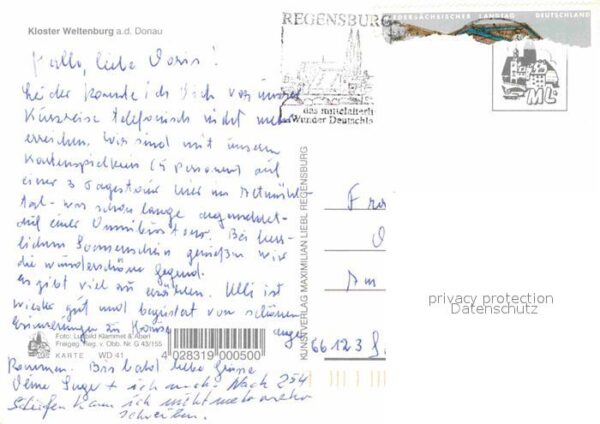 Kloster Weltenburg a.d. Donau
REGENSBURG
das mittelalterl
Wunder Deutschla
NIEDERSÄCHSISCHER LANDTAG DEUTSCHLAND
ML
Hallo, liebe Doris!
Leider konnte ich Dich vor unserer
Kurzreise telefonisch nicht mehr
erreichen. Wir sind mit unseren
Kartenspielern (5 Personen) auf
einer 3 Tagestour hier im Altmühl-
tal - was schon lange angemeldet-
auf einer Omnibustour. Bei herr-
lichem Sonnenschein genießen wir
die wunderschöne Gegend.
Es gibt viel zu erzählen. Ulli ist
wieder gut und begeistert von schönen
Erinnerungen zu Hause
Foto: Luftbild Klammet & Aberl
Freigeg. Reg. v. Obb. Nr. G 43/155
KARTE WD 41
4 028319 000500
Bis bald liebe Grüsse
Deine Inge + ich auch. Nach 254
Schleifen kann ich nicht mehr mehr
schreiben.
KUNSTVERLAG MAXIMILIAN LIEBL REGENSBURG
Am
66123
privacy protection
Datenschutz